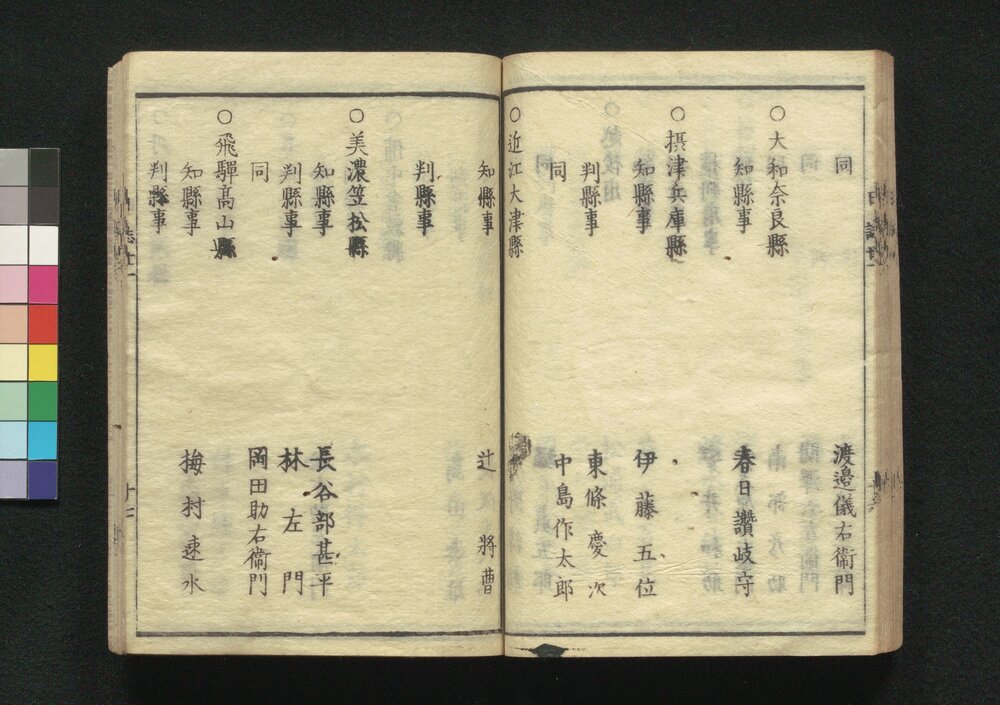 同 渡邉儀右衞門
○大和奈良縣
知縣事 春日讚岐守
○摂津兵庫縣
知縣事 伊藤五位
判縣事 東條慶次
同 中島作太郎
○近江大津縣
知縣事 辻将曹
判縣事
○美濃笠松縣
知縣事 長谷部甚平
判縣事 林左門
同 岡田助右衞門
○飛驒高山縣
知縣事 梅村速水
判縣事